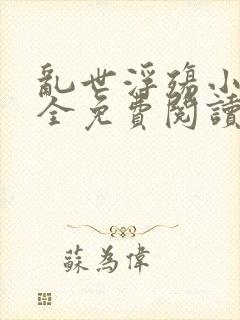 亂世浮殤小
全免費閱讀
蘇為偉